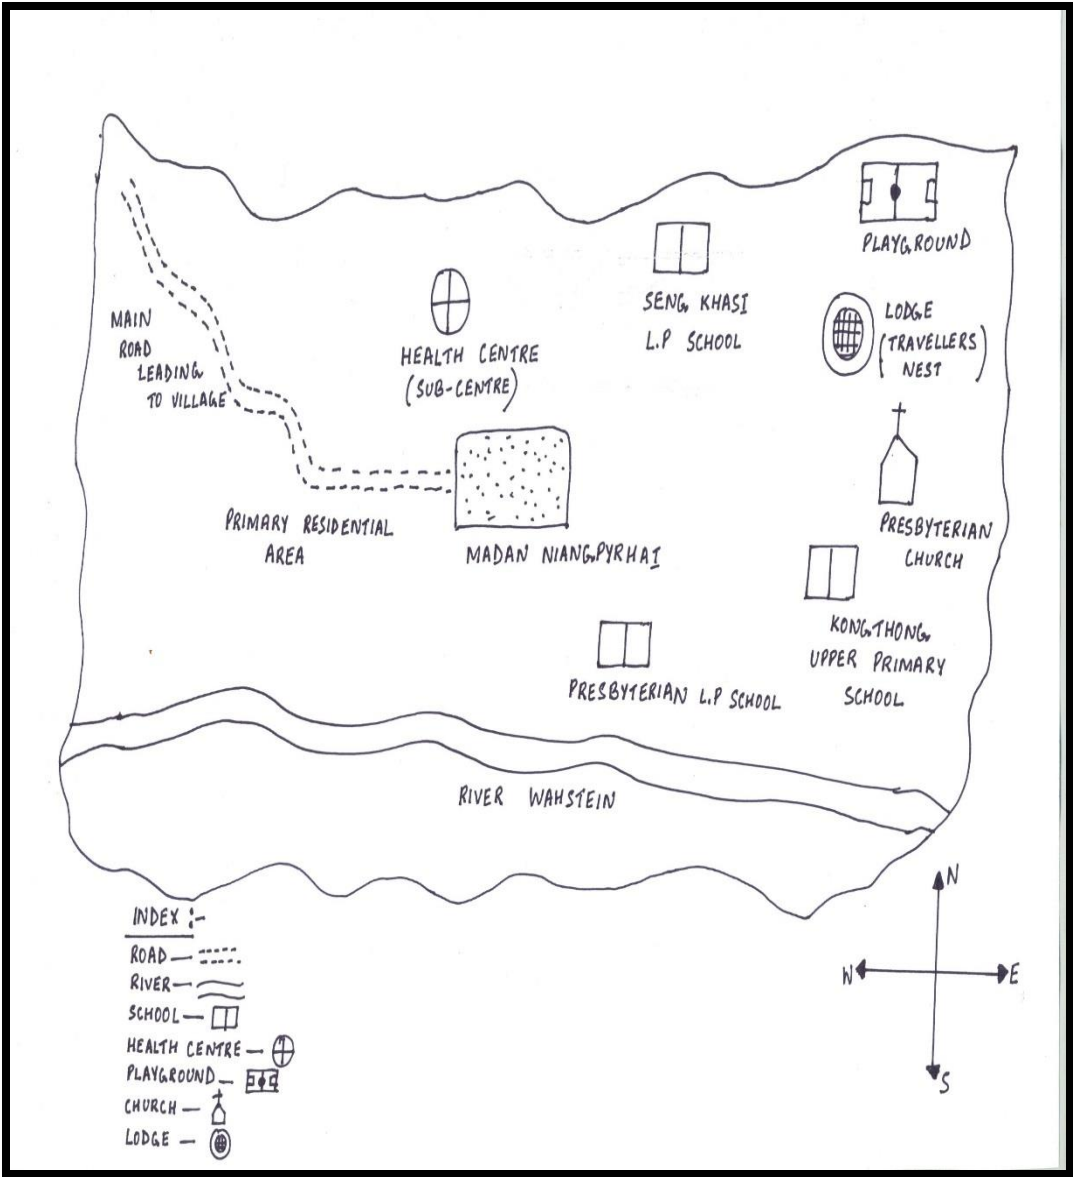 PLAYGROUND
SENG KHASI
L.P SCHOOL
LODGE
(TRAVELLERS
NEST)
MAIN
ROAD
LEADING
TO VILLAGE
HEALTH CENTRE
(SUB-CENTRE)
PRIMARY RESIDENTIAL
AREA
MADAN NIANGPYRHAI
PRESBYTERIAN
CHURCH
KONGTHONG
UPPER PRIMARY
SCHOOL
PRESBYTERIAN L.P SCHOOL
RIVER WAHSTEIN
N
W
E
S
INDEX :-
ROAD —
RIVER —
SCHOOL —
HEALTH CENTRE —
PLAYGROUND —
CHURCH —
LODGE —